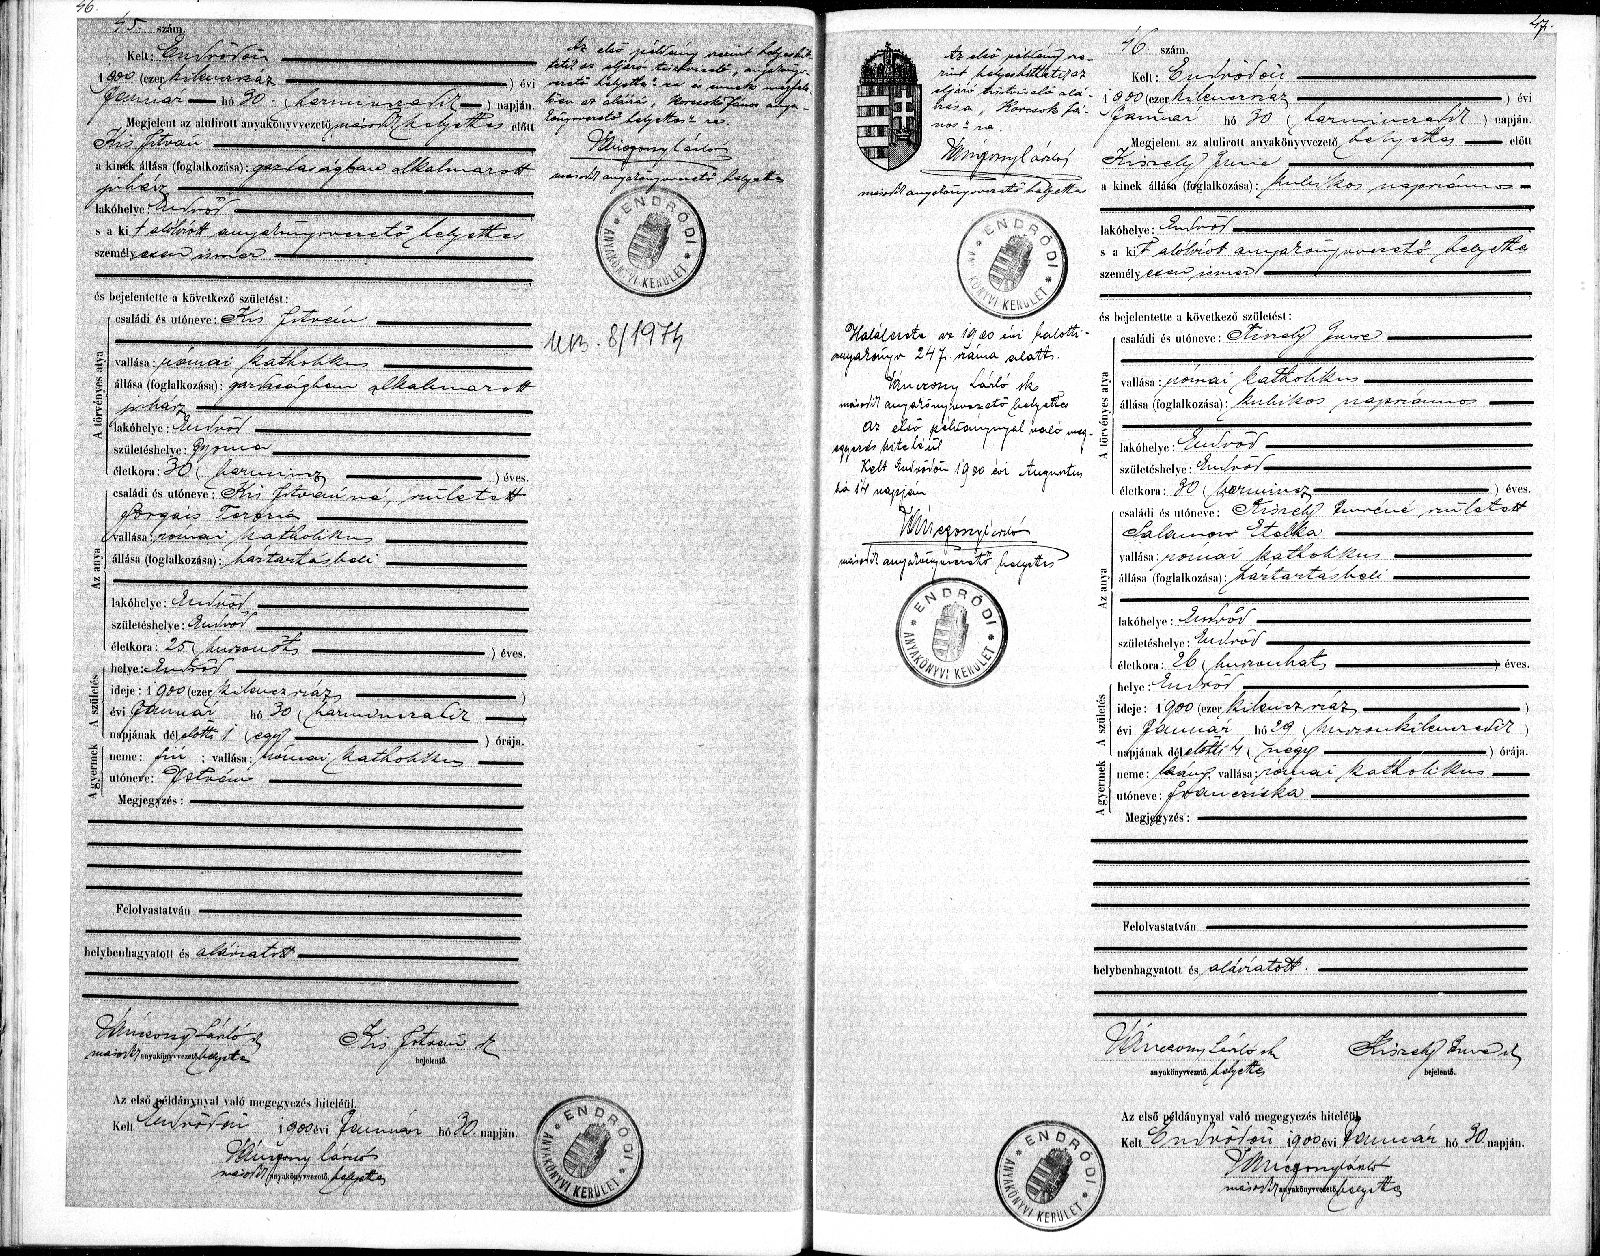 46.
45. szám.
Kelt: Endrődön
1900 (ezer kilencszáz) évi
Január hó 30. (harminczadik) napján.
Megjelent az alulirott anyakönyvvezető másodk helyettes előtt
Kis István
a kinek állása (foglalkozása): gazdaságban alkalmazott
juhász
lakóhelye: Endrőd
s a kit alólirott anyakönyvvezető helyettes
személyesen ismer.
és bejelentette a következő születést:
A törvényes atya
családi és utóneve: Kis István
vallása: római katholikus
állása (foglalkozása): gazdaságban alkalmazott
juhász
lakóhelye: Endrőd
születéshelye: Gyoma
életkora: 30 (harmincz) éves.
Az anya
családi és utóneve: Kis Istvánné, született
Terézia
vallása: római katholikus
állása (foglalkozása): háztartásbeli
lakóhelye: Endrőd
születéshelye: Endrőd
életkora: 25 (huszonöt) éves.
A születés
helye: Endrőd
ideje: 1900 (ezer kilenczszáz)
évi Január hó 30 (harminczadik)
napjának dél előtti 1 (egy) órája.
A gyermek
neme: fiú; vallása: római katholikus
utóneve: István
Megjegyzés:
Felolvastatván
helybenhagyatott és aláiratott
Vánczony László sk
másodk anyakönyvvezető helyettes
Kis István sk
bejelentő.
Az első példánynyal való megegyezés hiteléül.
Kelt Endrődön 1900 évi Január hó 30. napján.
Vánczony László
másodk anyakönyvvezető. helyettes
Az első példány szerint helyesbít-
anyakönyvvezető helyettes
Vánczony László
másodk anyakönyvvezető helyettes
ENDRŐDI
ANYAKÖNYVI KERÜLET
8/1974
ENDRŐDI
ANYAKÖNYVI KERÜLET
47.
Az első példány sze-
rint helyesbíttetik az
Vánczony László
másodk anyakönyvvezető helyettes
ENDRŐDI
ANYAKÖNYVI KERÜLET
Halálesete az 1900 évi halotti
anyakönyv 247. száma alatt.
Vánczony László sk
másodk anyakönyvvezető helyettes
Az első példánynyal való meg-
egyezés hiteléül
Kelt Endrődön 1900 évi Augusztus
hó 14 napján
Vánczony László
másodk anyakönyvvezető helyettes
ENDRŐDI
ANYAKÖNYVI KERÜLET
46 szám.
Kelt: Endrődön
1900 (ezer kilenczszáz) évi
Január hó 30 (harminczadik) napján.
Megjelent az alulirott anyakönyvvezető helyettes előtt
Kiszely Imre
a kinek állása (foglalkozása): kubikos napszámos
lakóhelye: Endrőd
s a kit alólirott anyakönyvvezető helyettes
személyesen ismer
és bejelentette a következő születést:
A törvényes atya
családi és utóneve: Kiszely Imre
vallása: római katholikus
állása (foglalkozása): kubikos napszámos
lakóhelye: Endrőd
születéshelye: Endrőd
életkora: 30 (harmincz) éves.
Az anya
családi és utóneve: Kiszely Imréné született
Salamon Etelka
vallása: római katholikus
állása (foglalkozása): háztartásbeli
lakóhelye: Endrőd
születéshelye: Endrőd
életkora: 26 (huszonhat) éves.
A születés
helye: Endrőd
ideje: 1900 (ezer kilencz száz)
évi Január hó 29 (huszonkilenczedik)
napjának dél előtti 4 (négy) órája.
A gyermek
neme: leány; vallása: római katholikus
utóneve: Francziska
Megjegyzés:
Felolvastatván
helybenhagyatott és aláiratott.
Vánczony László sk
anyakönyvvezető. helyettes
Kiszely Imre sk
bejelentő.
Az első példánynyal való megegyezés hiteléül.
Kelt Endrődön 1900 évi Január hó 30 napján.
Vánczony László
másodk anyakönyvvezető. helyettes
ENDRŐDI
ANYAKÖNYVI KERÜLET